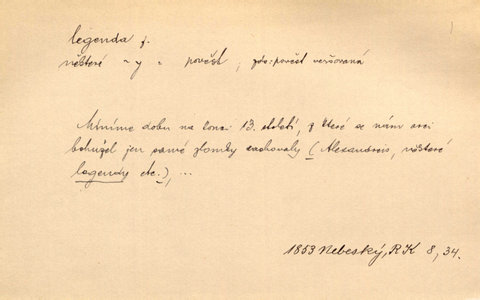 legenda f.
některé ~ y = pověst ; zde: pověst veršovaná
Míníme dobu na konci 13. století, z které se nám arci
bohužel jen samé zlomky zachovaly (Alexandreis, některé
legendy etc.), ...
1853 Nebeský, RK 8, 34.